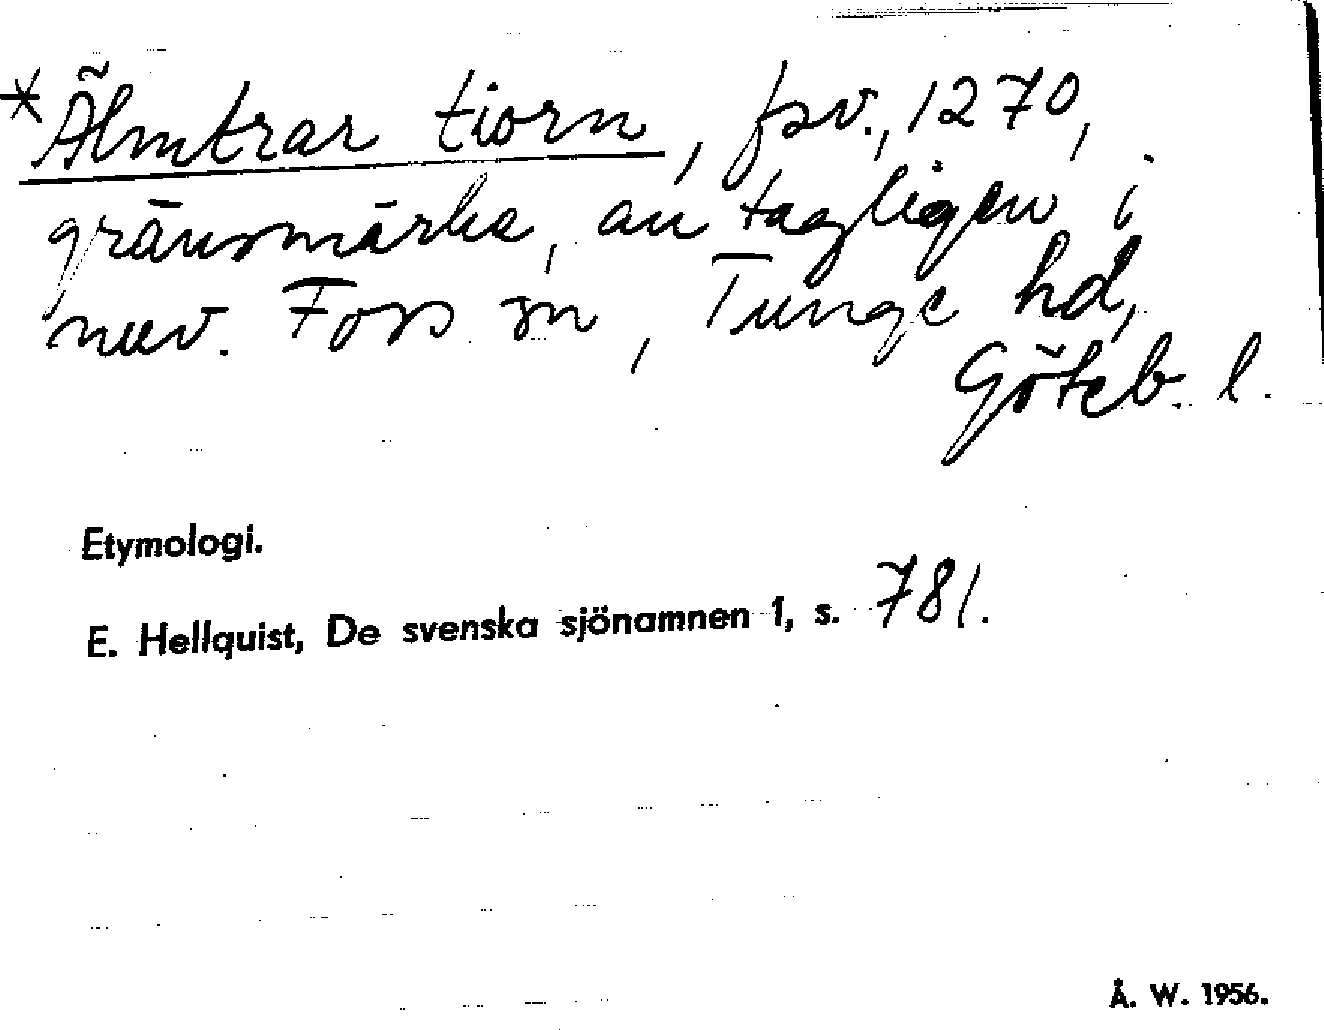 *Älmtrar tiorn, fsv., 1270,
gränsmärke, antagligen i
nuv. Foss sn, Tunge hd,
Göteb. l.
Etymologi.
E. Hellquist, De svenska sjönamnen 1, s. 781.
Å. W. 1956.